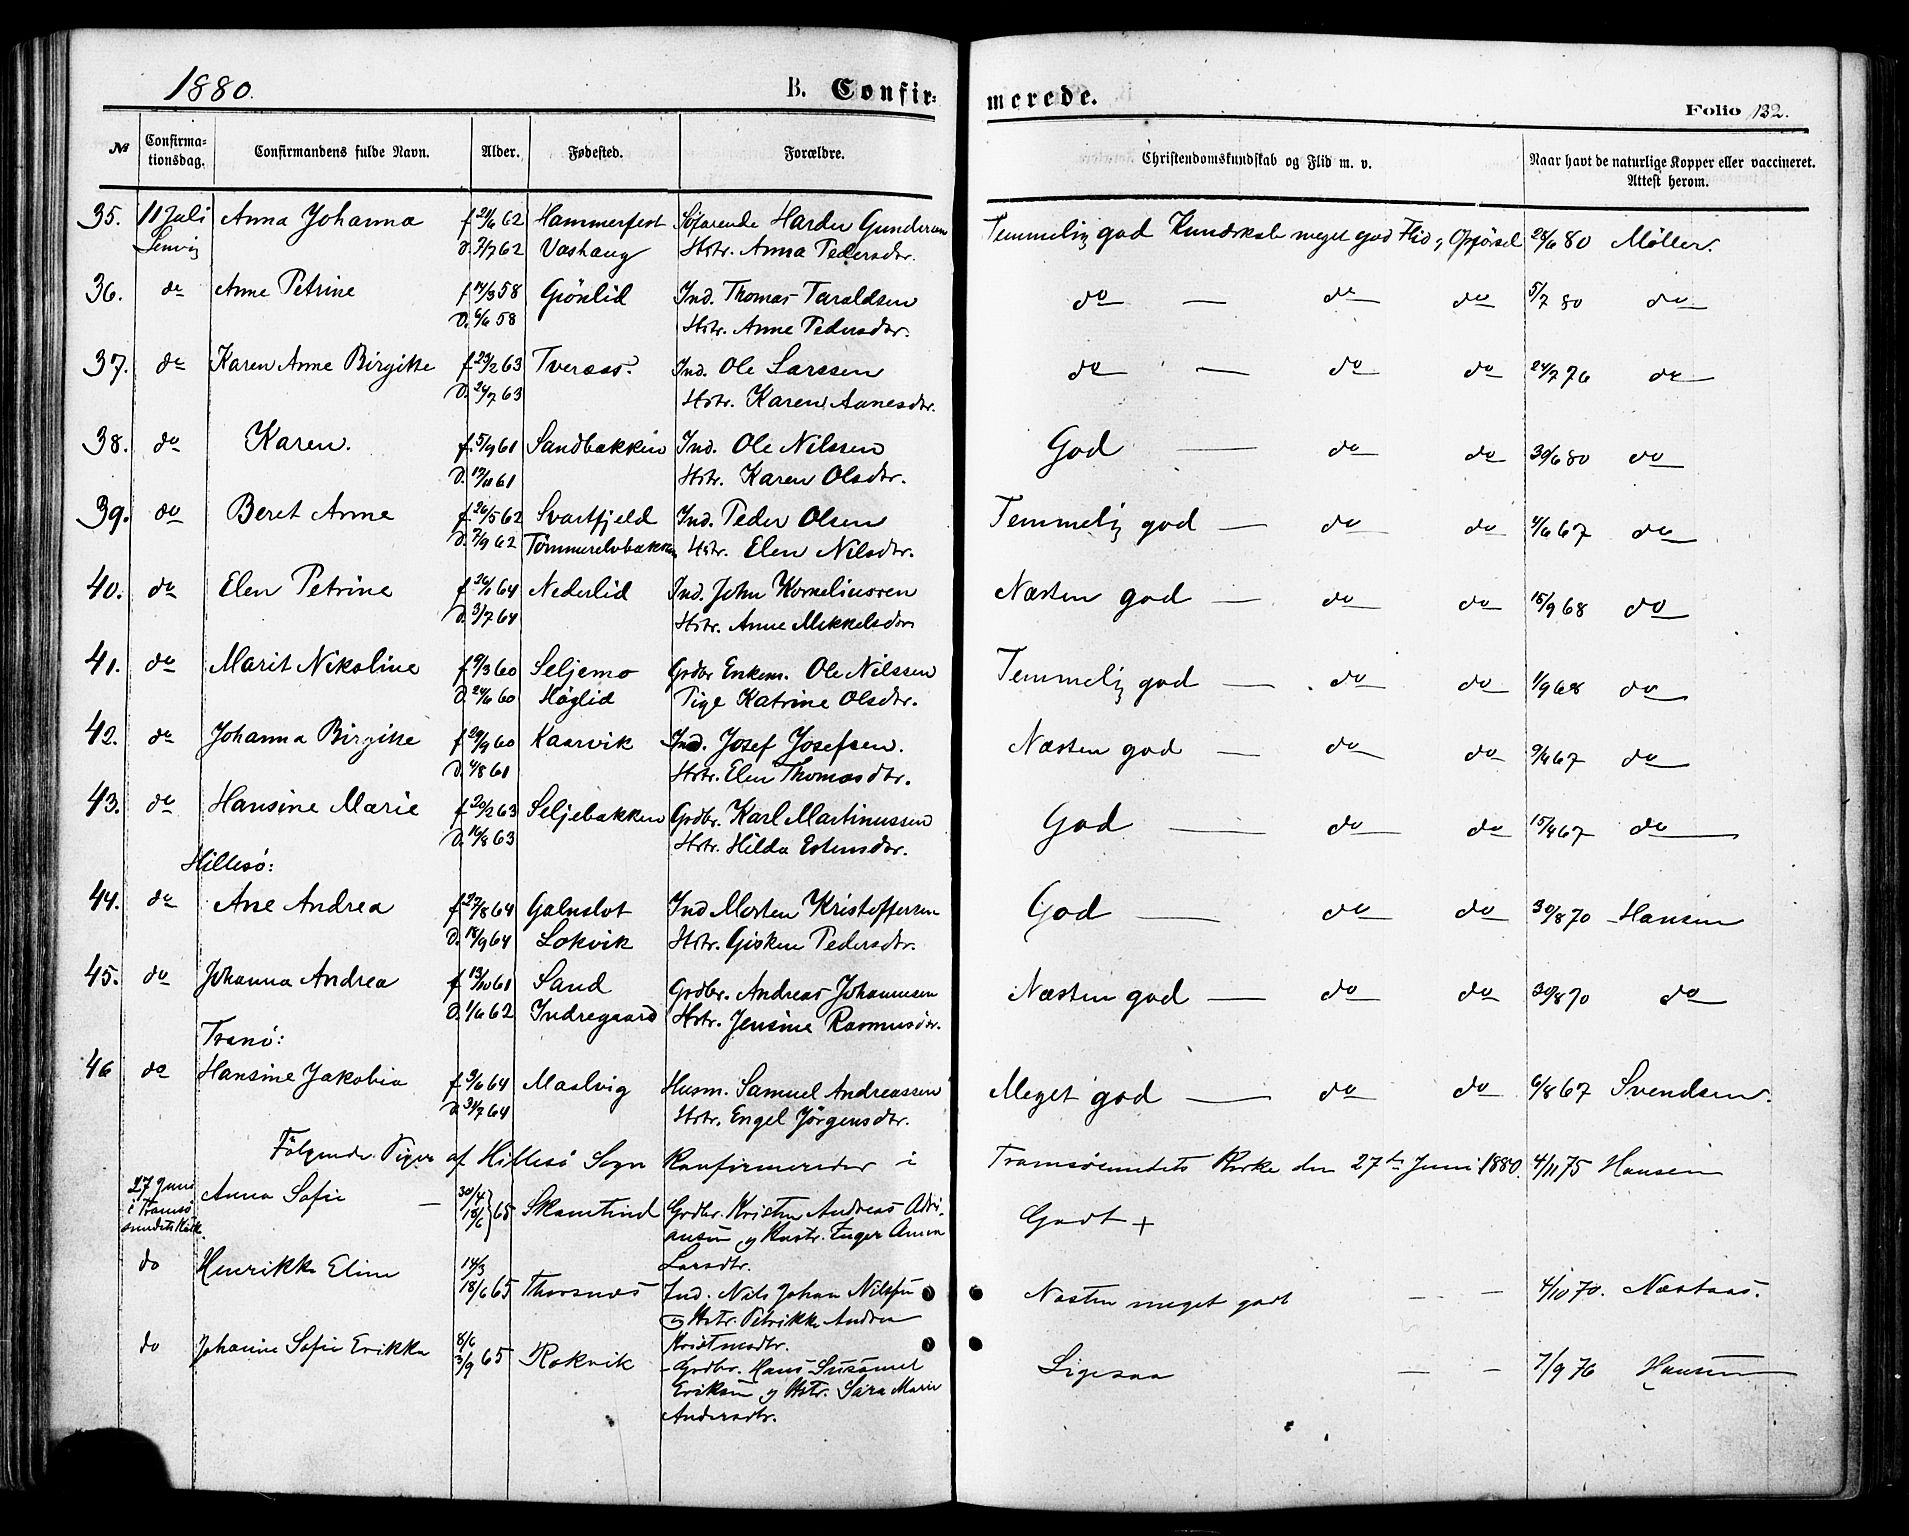 1880.
B. Confirmerede.
Folio 132.
№ Confirmationsdag. Confirmandens fulde Navn. Alder. Fødested. Forældre. Christendomskundskab og Flid m. v. Naar havt de naturlige Kopper eller vaccineret. Attest herom.
35. 11 Juli Anna Johanna f 21/6 62 Hammerfest Søfarende Harder Gundersen Temmelig god Kundskab meget god Flid og Opførsel 28/6 80 Møller.
Lenvig D. 7/7 62 Vashaug Hstr. Anna Pedersdtr.
36. do Anne Petrine f 14/3 58 Grönlid Ind. Thomas Taraldsen do — do do 5/7 80 do
D. 6/6 58 Hstr. Anne Pedersdtr.
37. do Karen Anne Birgitte f 23/2 63 Tveraas. Ind. Ole Larssen do — do do 24/7 76 do
D. 24/7 63 Hstr. Karen Aanesdtr.
38. do Karen. f. 5/9 61 Sandbakken Ind. Ole Nilssen God — do do 30/6 80 do
D. 13/10 61 Hstr. Karen Olsdtr.
39. do Beret Anne f. 26/5 62 Svartfjeld Ind. Peder Olsen Temmelig god — do do 4/6 67 do
D. 7/9 62 Tømmerelvbakken Hstr. Elen Nilsdtr.
40. do Elen Petrine f 26/1 64 Nederlid Ind. John Korneliussen Næsten god — do do 15/9 68 do
D. 3/7 64 Hstr. Anne Mikkelsdtr
41. do Marit Nikoline f 9/3 60 Seljemo Grdbr Enkem. Ole Nilssen Temmelig god — do do 1/9 68 do
D. 24/6 60 Høglid Pige Katrine Olsdtr.
42. do Johanna Birgitte f 29/9 60 Kaarvik Ind. Josef Josefsen. Næsten god — do do 9/4 67 do
D. 4/8 61 Hstr. Elen Thomasdtr.
43. do Hansine Marie f 20/2 63 Seljebakken Grdbr. Karl Martinussen God — do do 15/4 67 do
D. 16/8 63 Hstr. Hilda Estensdtr.
Hillesø:
44. do Ane Andrea f 22/8 64 Galnslot Ind Morten Kristoffersen God — do do 30/8 70 Hansen
D. 18/9 64 Lokvik Hstr. Gisken Pedersdtr.
45. do Johanna Andrea f 13/10 61 Sand Grdbr. Andreas Johannesen Næsten god — do do 30/8 70 do
D. 1/6 62 Indregaard Hstr. Jensine Rasmusdtr.
Tranø:
46 do Hansine Jakobia f 5/6 64 Maalvig Husm. Samuel Andreassen Meget god — do do 6/8 67 Svendsen.
D 31/7 64 Hstr. Engel Jørgensdtr.
Følgende Piger af Hillesø Sogn Konfirmereder i Tromsøsundets Kirke den 27de Juni 1880. 4/11 75 Hansen
27 Juni Anna Sofie — 30/4 18/6 } 65 Skamtind Grdbr. Kristen Andreas Adri- Godt +
i Tromsø ansen og Hustr. Inger Anna
sundets Kirk. Larsdtr.
do Henrikke Eline 14/3 18/6 65 Thorsnes Ind. Nils Johan Nilssen Næsten meget godt — — 4/10 70. Næstaas.
og Hstr. Petrikke Andrea
Kristensdtr.
do Johanne Sofie Erikka 8/6 3/9 65 Rokvik Grdbr. Hans Susamel Ligesaa — — 7/9 76 Hansen
Eriksen og Hstr. Sara Marie
Andersdtr.